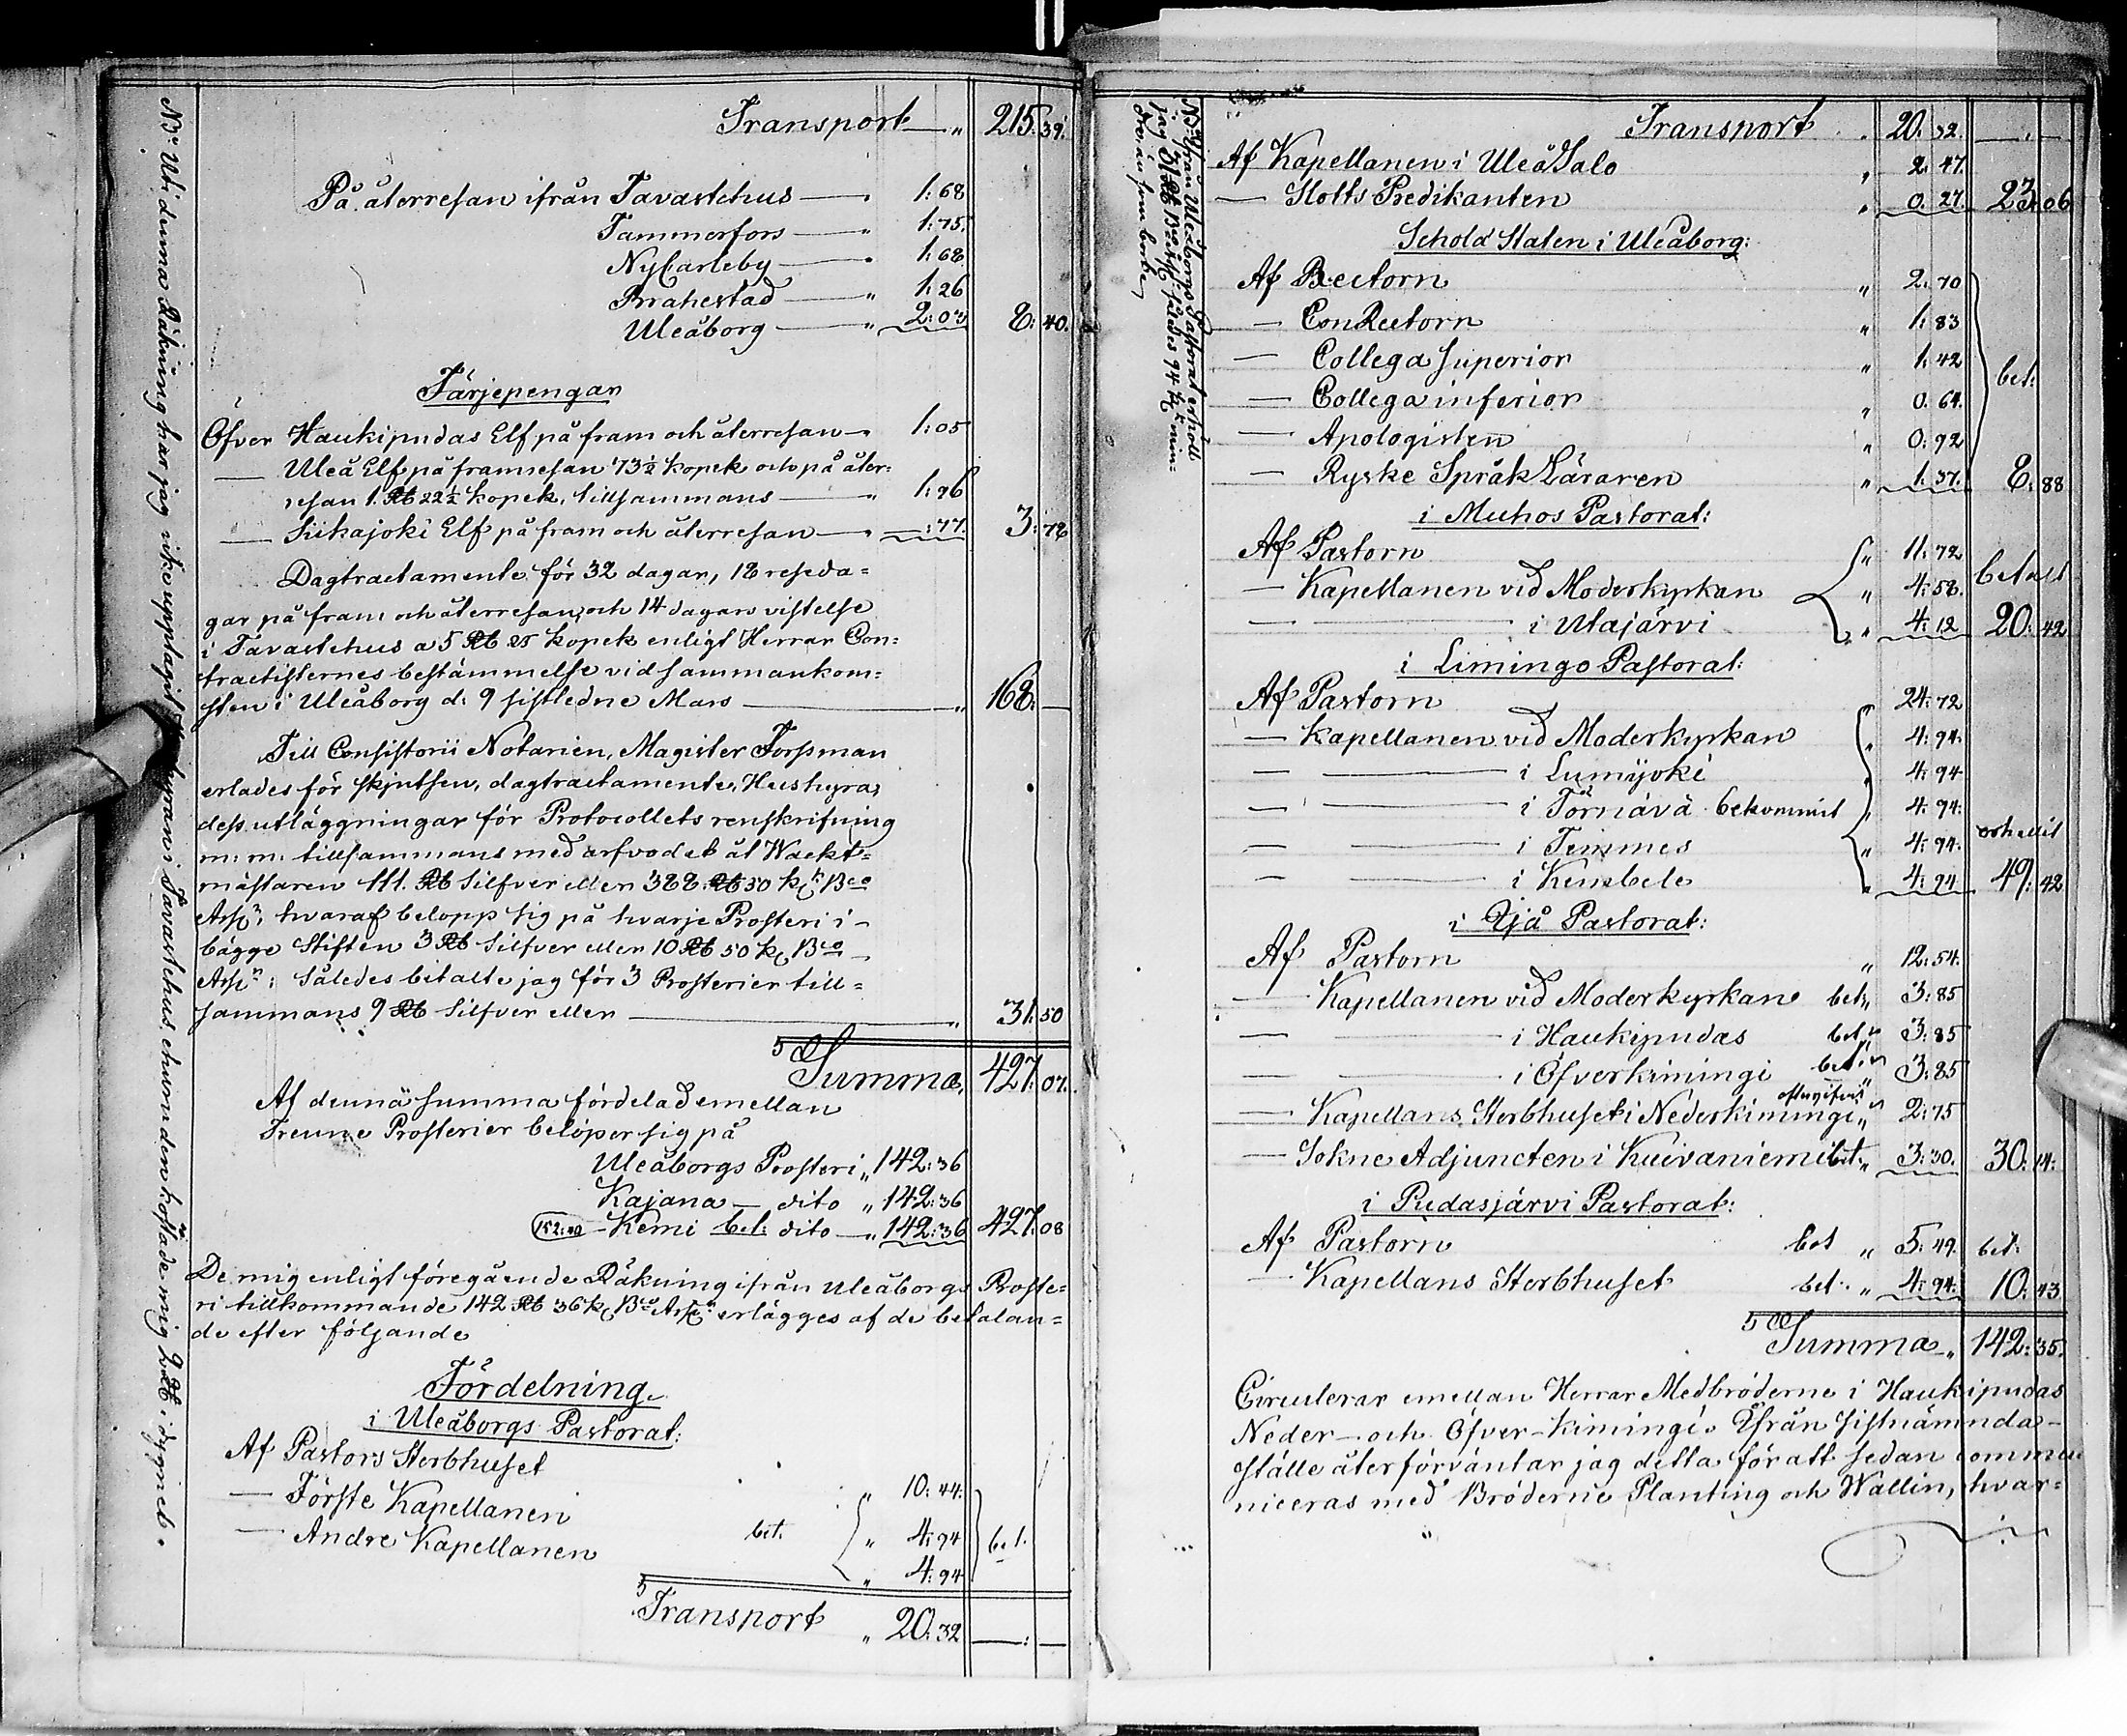 Transport — " 215. 39.
På återresan ifrån Tavastehus — " 1: 68
Tammerfors — " 1: 75.
NyCarleby — " 1: 68
Brahestad — " 1: 26
Uleåborg — " 2: 03 8: 40.
Färjepengar
Öfver Haukipudas Elf på fram och återresan — " 1: 05
— Uleå Elf på framresan 73½ kopek och på åter-
resan 1. Rb 22½ kopek, tillsammans — " 1: 96
— Siikajoki Elf på fram och återresan — " —: 77. 3: 78
Dagtractamente för 32 dagar, 18 reseda=
gar på fram och återresan, och 14 dagars vistelse
i Tavastehus a 5 Rb 25 kopek enligt Herrar Con=
tractisternes bestämmelse vid sammankom=
sten i Uleåborg d: 9 sistledne Mars — " 168: —
Till Consistorii Notarien, Magister Forssman
erlades för skjutsen, dagtractamente, Hushyra,
dess utläggningar för Protocollets renskrifning
m: m: tillsammans med arfvodet åt Wackt=
mästaren 111. Rb Silfver eller 388. Rb 50 k. Bco
Assr: hvaraf belopp sig på hvarje Prosteri i
bägge Stiften 3 Rb Silfver eller 10 Rb 50 k. Bco
Assr: Således betalte jag för 3 Prosterier till=
sammans 9 Rb Silfver eller — " 31: 50
Summa, 427: 07.
Af denna summa fördelad emellan
Trenne Prosterier belöper sig på
Uleåborgs Prosteri " 142: 36
Kajana — dito " 142: 36
152: 40 — Kemi bet: dito — " 142: 36 427: 08
De mig enligt föregående Räkning ifrån Uleåborgs Proste=
ri tillkommande 142 Rb 36 k. Bco Assr erlägges af de betalan=
de efter följande
Fördelning.
i Uleåborgs Pastorat:
Af Pastors Sterbhuset " 10: 44.
— Förste Kapellanen bet. " 4: 94 bet.
— Andre Kapellanen " 4: 94
Transport " 20: 32 —: —
Nb: Uti denna Räkning har jag icke upptagit i Tavastehus ehuru den kostade mig 2 Rb. i dygnet.
Nb: Ifrån Uleåborgs Pastorat erhöll
jag Således 94 k. min=
dre än som borde
Transport " 20. 32. —: —
Af Kapellanen i UleåSalo " 2. 47.
— Slotts Predikanten " 0. 27. 23: 06
Schola Staten i Uleåborg:
Af Rectorn " 2. 70
— ConRectorn " 1: 83
— Collega superior " 1: 42 bet:
— Collega inferior " 0. 64.
— Apologisten " 0: 92
— Ryske Språk Läraren " 1. 37. 8: 88
i Muhos Pastorat:
Af Pastorn " 11: 72
— Kapellanen vid Moderkyrkan " 4: 58. betalt
— — i Utajärvi " 4: 12 20: 42
i Limingo Pastorat:
Af Pastorn " 24: 72
— Kapellanen vid Moderkyrkan " 4: 94.
— — i Lumijoki " 4: 94
— — i Törnävä bekommit " 4: 94:
— — i Temmes " 4: 94.
— — i Kembele " 4: 94 49: 42
i Ijå Pastorat:
Af Pastorn " 12: 54.
— Kapellanen vid Moderkyrkan bet " 3: 85
— — i Haukipudas bet " 3: 85
— — i Öfverkimingi bet " 3: 85
— Kapellans Sterbhuset i Nederkimingi " 2: 75
— Sokne Adjuncten i Kuivaniemi bet: " 3: 30. 30: 14:
i Pudasjärvi Pastorat:
Af Pastorn bet " 5: 49. bet:
— Kapellans Sterbhuset bet: " 4: 94. 10: 43
Summa " 142: 35.
Circulerar emellan Herrar Medbröderne i Haukipudas
Neder- och Öfver-Kimingi. Ifrån sistnämnda
ställe återförväntar jag detta för att sedan commu
niceras med Bröderne Planting och Wallin, hvar=